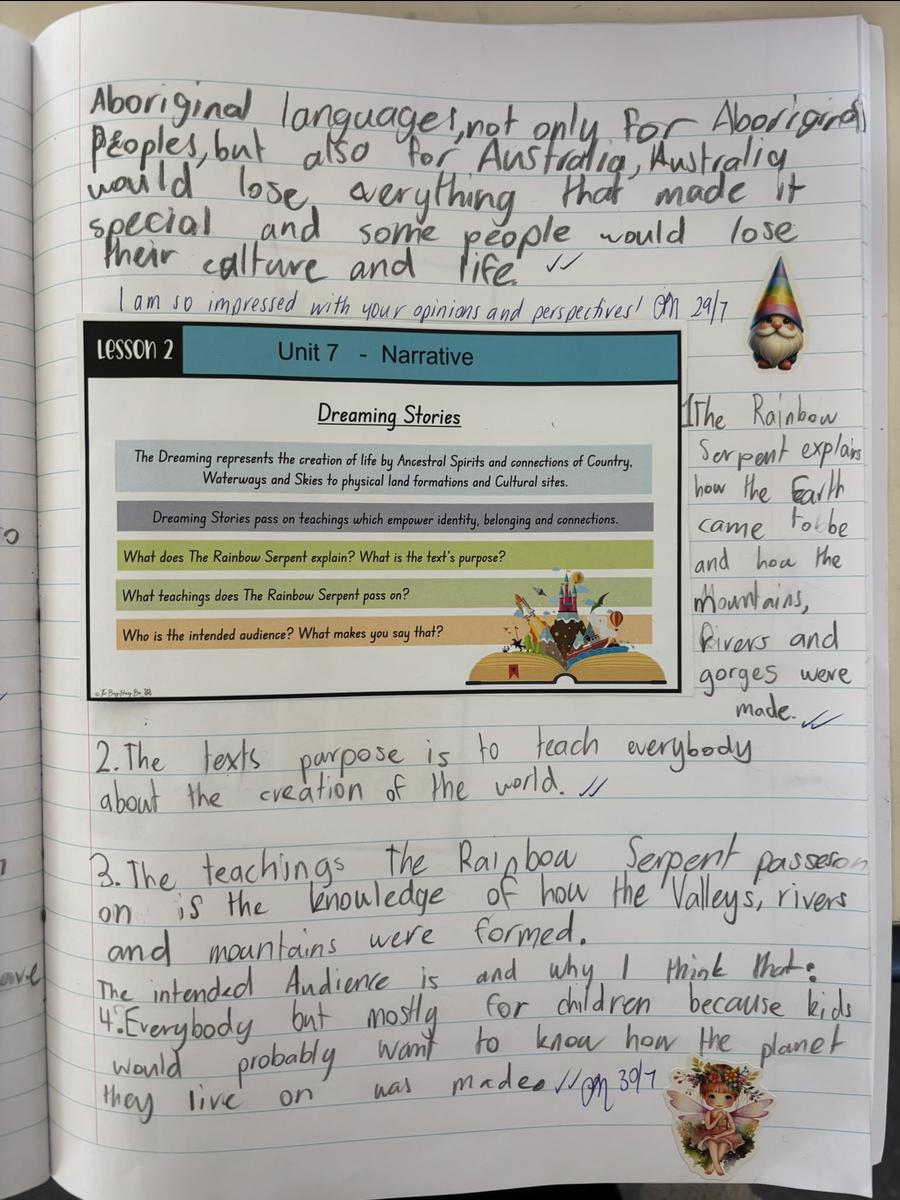 Aboriginal languages, not only for Aboriginal
Peoples, but also for Australia, Australia
would lose everything that made it
special and some people would lose
their calture and life.
I am so impressed with your opinions and perspectives! 29/7
Lesson 2
Unit 7 - Narrative
Dreaming Stories
The Dreaming represents the creation of life by Ancestral Spirits and connections of Country,
Waterways and Skies to physical land formations and Cultural sites.
Dreaming Stories pass on teachings which empower identity, belonging and connections.
What does The Rainbow Serpent explain? What is the text's purpose?
What teachings does The Rainbow Serpent pass on?
Who is the intended audience? What makes you say that?
1The Rainbow
Serpent explains
how the Earth
came to be
and how the
Mountains,
Rivers and
gorges were
made.
2. The texts parpose is to teach everybody
about the creation of the world.
3. The teachings the Rainbow Serpent passeson
on is the knowledge of how the Valleys, rivers
and mountains were formed.
The intended Audience is and why I think that:
4. Everybody but mostly for children because kids
would probably want to know how the planet
they live on was made. 30/7